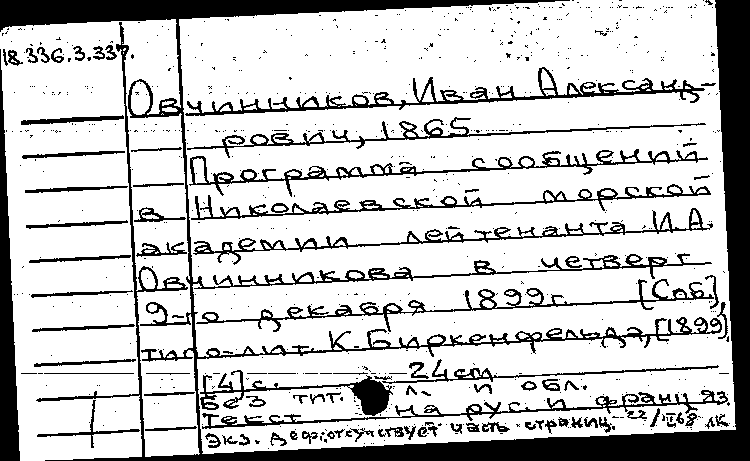 18.336.3.337.
Овчинников, Иван Александ-
рович, 1865.
Программа сообщений
в Николаевской морской
академии лейтенанта И.А.
Овчинникова в четверг
9-го декабря 1899 г. [Спб.],
типо-лит. К. Биркенфельда, [1899]
[4] с. 24 cm
Без тит. л. и обл.
Текст на рус. и франц яз
Экз. деф: отсутствует часть страниц. 22/ 68 ЛК